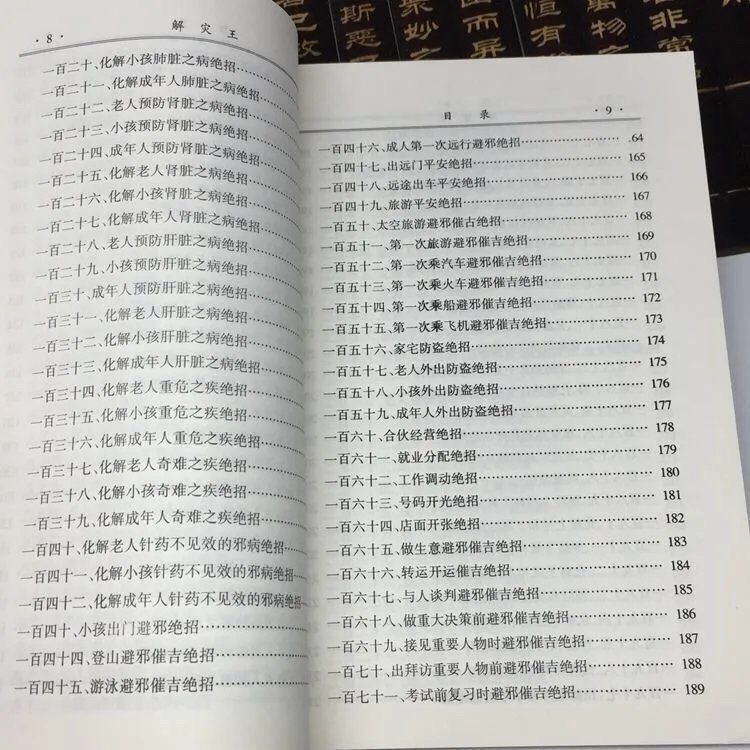 · 8 · 解 灾 王
一百二十、化解小孩肺脏之病绝招
一百二十一、化解成年人肺脏之病绝招
一百二十二、老人预防肾脏之病绝招
一百二十三、小孩预防肾脏之病绝招
一百二十四、成年人预防肾脏之病绝招
一百二十五、化解老人肾脏之病绝招
一百二十六、化解小孩肾脏之病绝招
一百二十七、化解成年人肾脏之病绝招
一百二十八、老人预防肝脏之病绝招
一百二十九、小孩预防肝脏之病绝招
一百三十、成年人预防肝脏之病绝招
一百三十一、化解老人肝脏之病绝招
一百三十二、化解小孩肝脏之病绝招
一百三十三、化解成年人肝脏之病绝招
一百三十四、化解老人重危之疾绝招
一百三十五、化解小孩重危之疾绝招
一百三十六、化解成年人重危之疾绝招
一百三十七、化解老人奇难之疾绝招
一百三十八、化解小孩奇难之疾绝招
一百三十九、化解成年人奇难之疾绝招
一百四十、化解老人针药不见效的邪病绝招
一百四十一、化解小孩针药不见效的邪病绝招
一百四十二、化解成年人针药不见效的邪病绝招
一百四十、小孩出门避邪绝招
一百四十四、登山避邪催吉绝招
一百四十五、游泳避邪催吉绝招
目 录 · 9 ·
一百四十六、成人第一次远行避邪绝招 64
一百四十七、出远门平安绝招 165
一百四十八、远途出车平安绝招 166
一百四十九、旅游平安绝招 167
一百五十、太空旅游避邪催古绝招 168
一百五十一、第一次旅游避邪催吉绝招 169
一百五十二、第一次乘汽车避邪催吉绝招 170
一百五十三、第一次乘火车避邪催吉绝招 171
一百五十四、第一次乘船避邪催吉绝招 172
一百五十五、第一次乘飞机避邪催吉绝招 173
一百五十六、家宅防盗绝招 174
一百五十七、老人外出防盗绝招 175
一百五十八、小孩外出防盗绝招 176
一百五十九、成年人外出防盗绝招 177
一百六十、合伙经营绝招 178
一百六十一、就业分配绝招 179
一百六十二、工作调动绝招 180
一百六十三、号码开光绝招 181
一百六十四、店面开张绝招 182
一百六十五、做生意避邪催吉绝招 183
一百六十六、转运开运催吉绝招 184
一百六十七、与人谈判避邪催吉绝招 185
一百六十八、做重大决策前避邪催吉绝招 186
一百六十九、接见重要人物时避邪催吉绝招 187
一百七十、出拜访重要人物前避邪催吉绝招 188
一百七十一、考试前复习时避邪催吉绝招 189